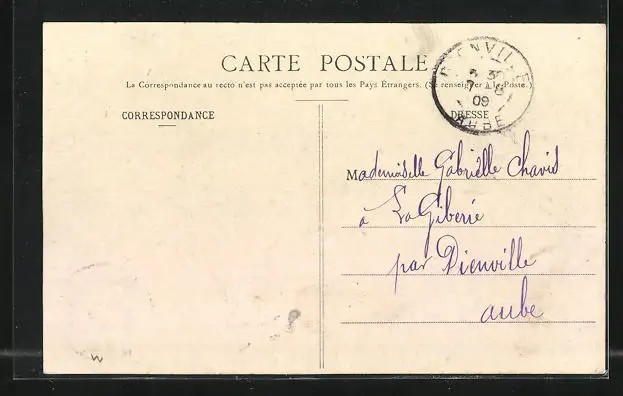 CARTE POSTALE
La Correspondance au recto n'est pas acceptée par tous les Pays Étrangers. (Se renseigner à la Poste.)
DIENVILLE
09
AUBE
CORRESPONDANCE
DRESSE
Mademoiselle Gabrielle Chavis
à La Giberie
par Dienville
aube